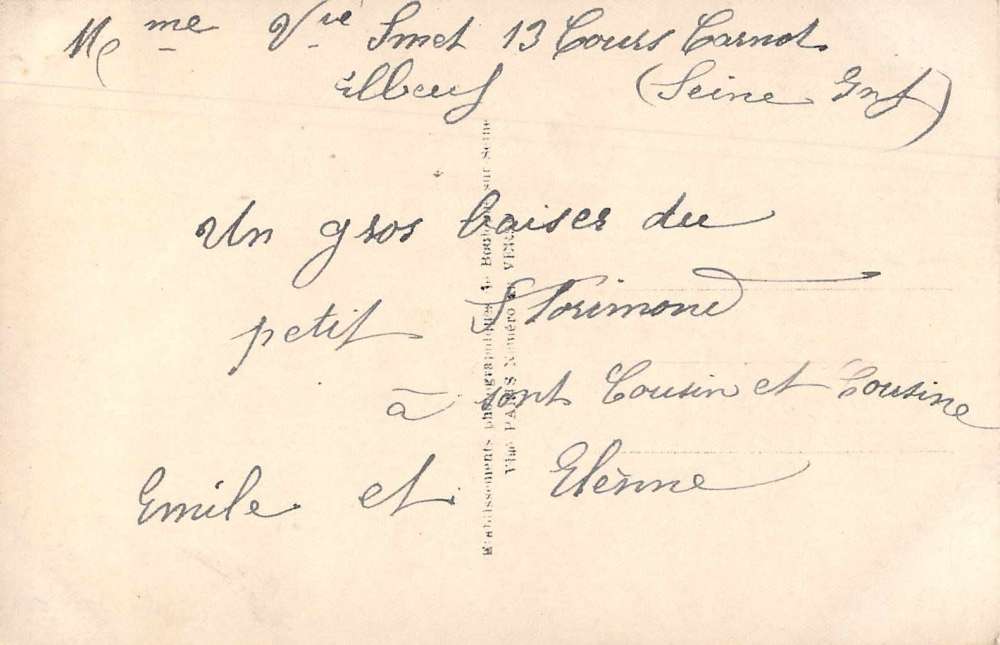 Mme Vve Smet 13 Cours Carnot
Elbeuf (Seine Inf)
Un gros baiser du
petit Florimond
à sont Cousin et Cousine
Emile et Elènne
Etablissements photographiques de sur seine
PARIS Numéro